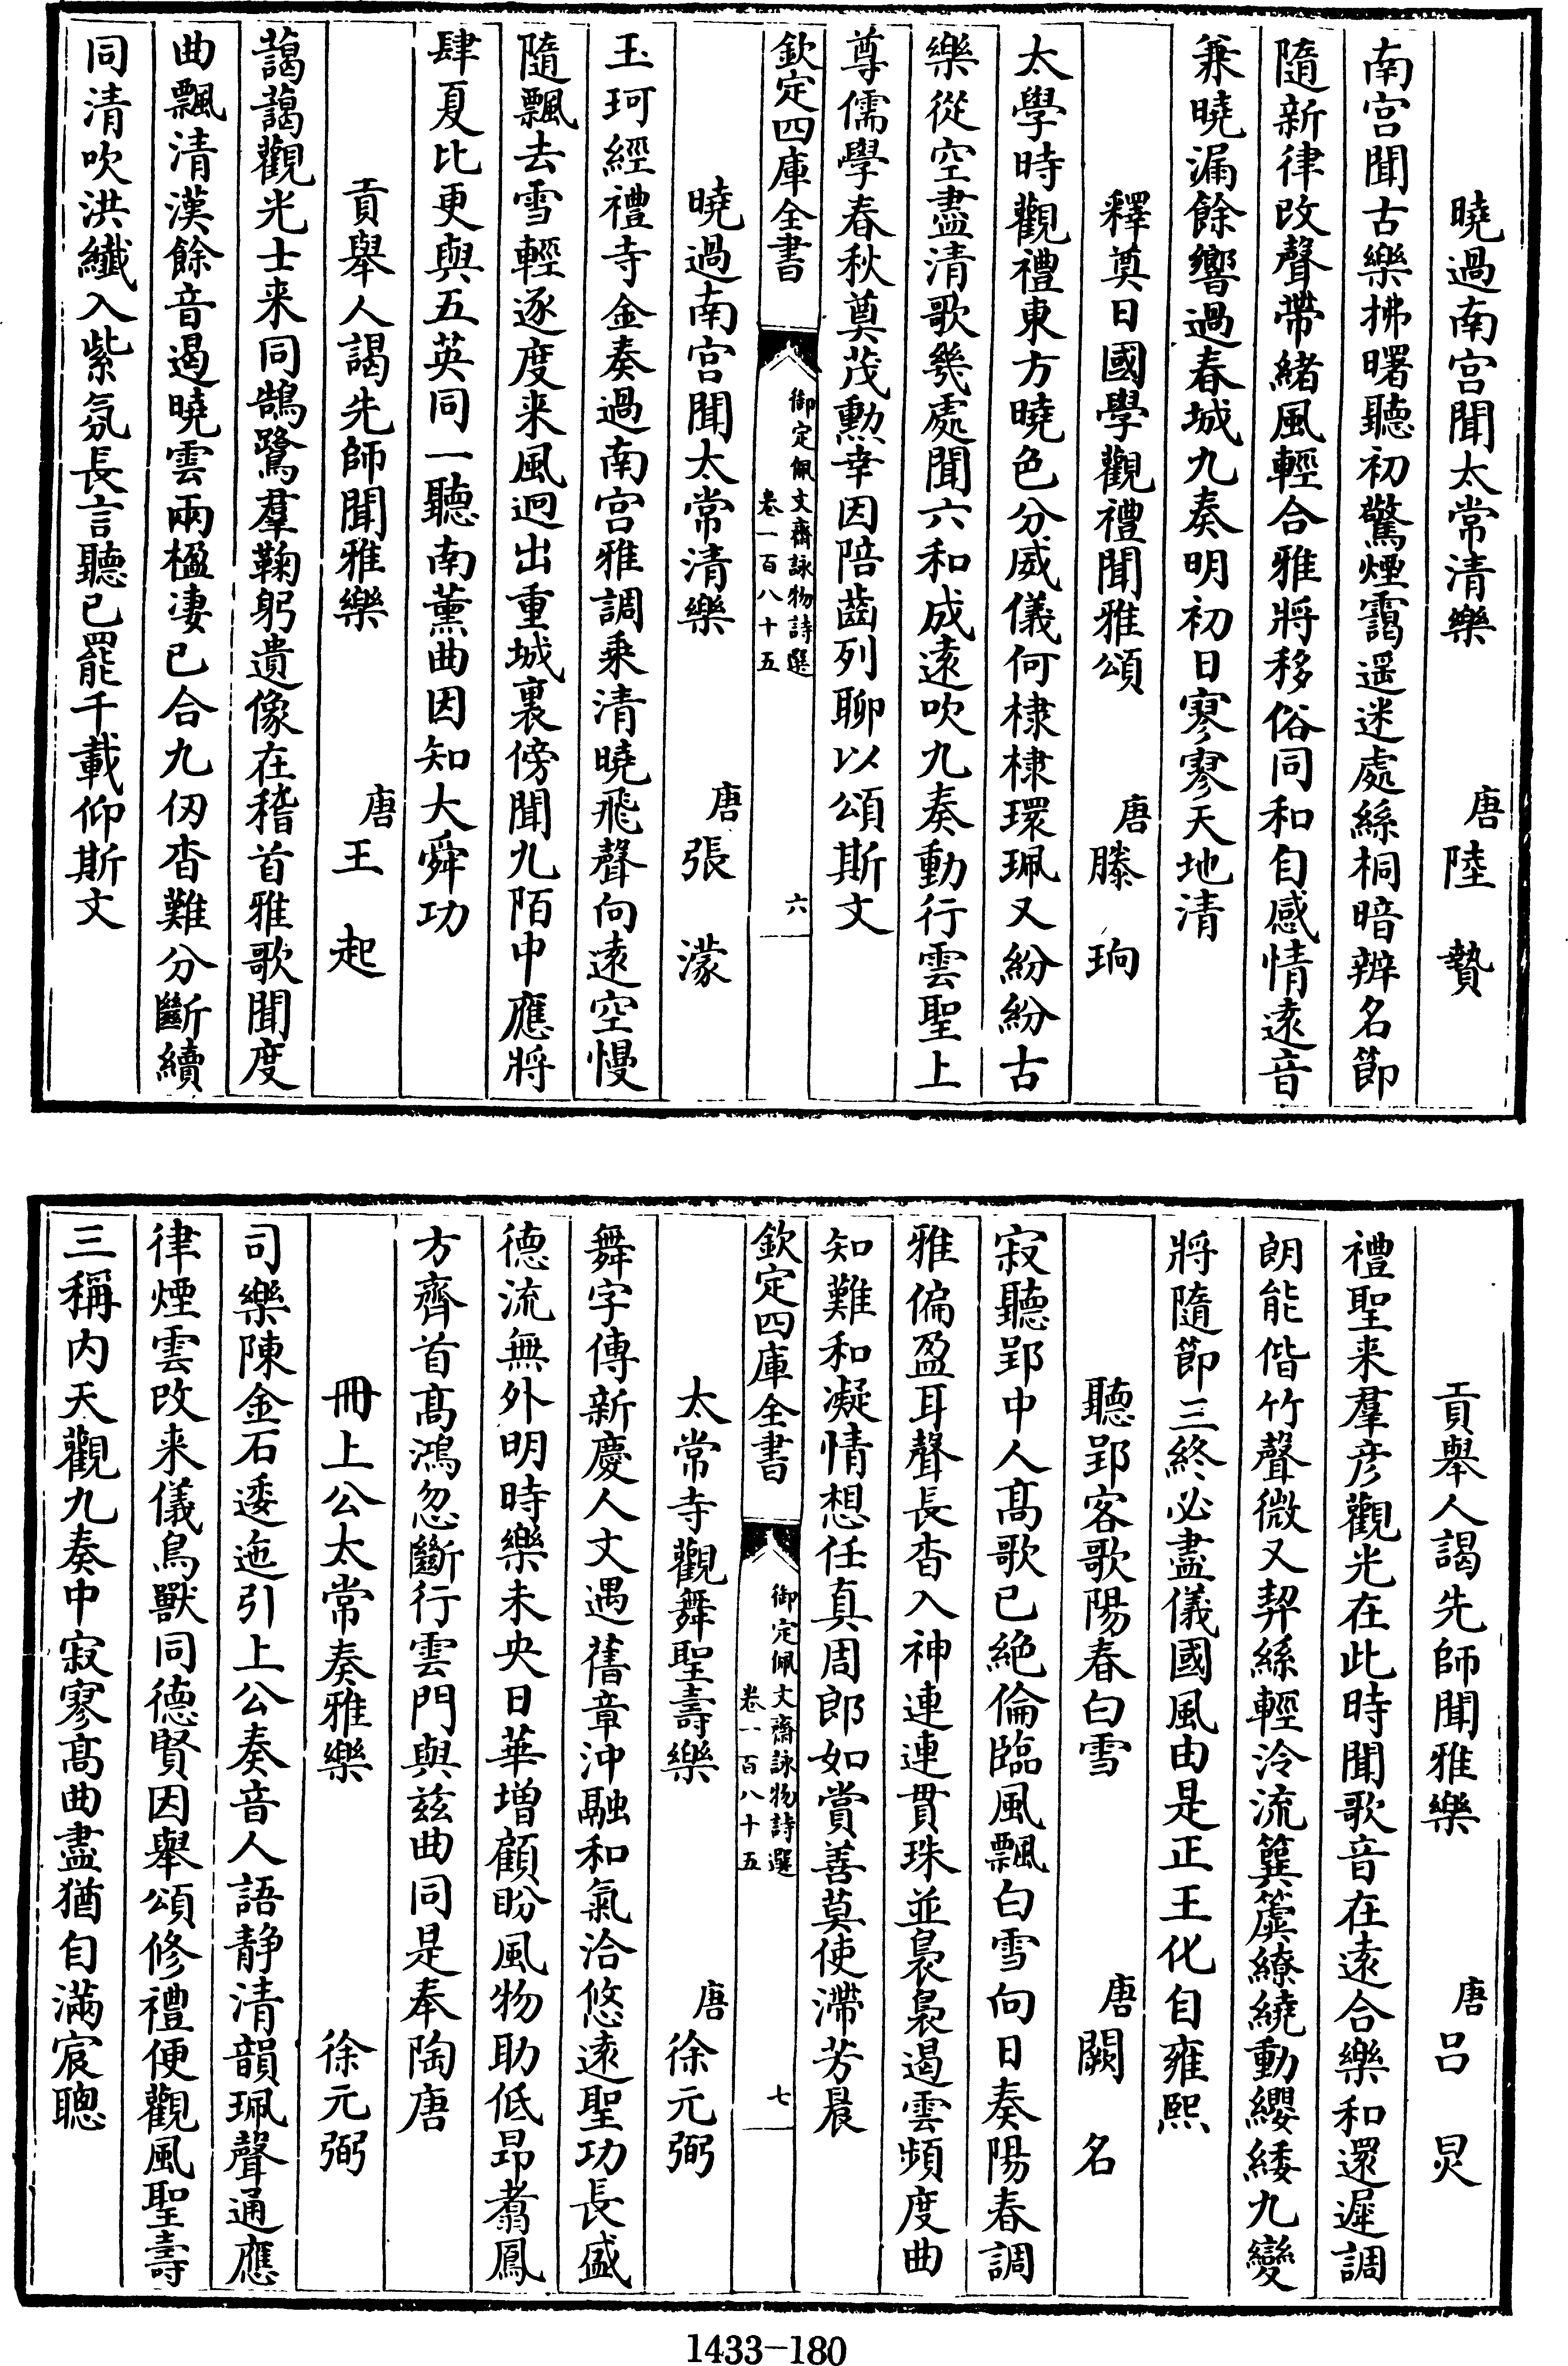 曉過南宮聞太常清樂　唐陸贄
南宮聞古樂拂曙聽初驚煙靄遥迷處絲桐暗辨名節
隨新律改聲帶緒風輕合雅將移俗同和自感情逺音
兼曉漏餘響過春城九奏明初日寥寥天地清
釋奠日國學觀禮聞雅頌　唐滕珦
太學時觀禮東方曉色分威儀何棣棣環珮又紛紛古
樂從空盡清歌幾處聞六和成逺吹九奏動行雲聖上
尊儒學春秋奠茂勲幸因陪齒列聊以頌斯文
欽定四庫全書
御定佩文齋詠物詩選
卷一百八十五
六
曉過南宮聞太常清樂　唐張濛
玉珂經禮寺金奏過南宮雅調乘清曉飛聲向逺空慢
隨飄去雪輕逐度来風迥出重城裏傍聞九陌中應將
肆夏比更與五英同一聽南薰曲因知大舜功
貢舉人謁先師聞雅樂　唐王起
藹藹觀光士来同鵠鷺羣鞠躬遺像在稽首雅歌聞度
曲飄清漢餘音遏曉雲兩楹凄已合九仞杳難分斷續
同清吹洪纖入紫氛長言聽已罷千載仰斯文
貢舉人謁先師聞雅樂　唐吕炅
禮聖来羣彦觀光在此時聞歌音在逺合樂和還遲調
朗能偕竹聲微又契絲輕泠流簨虡繚繞動纓緌九變
將隨節三終必盡儀國風由是正王化自雍熙
聽郢客歌陽春白雪　唐闕名
寂聽郢中人髙歌已絶倫臨風飄白雪向日奏陽春調
雅偏盈耳聲長杳入神連連貫珠並裊裊遏雲頻度曲
知難和凝情想任真周郎如賞善莫使滯芳晨
欽定四庫全書
御定佩文齋詠物詩選
卷一百八十五
七
太常寺觀舞聖壽樂　唐徐元弼
舞字傳新慶人文遇舊章沖融和氣洽悠逺聖功長盛
德流無外明時樂未央日華増顧盼風物助低昂翥鳳
方齊首髙鴻忽斷行雲門與兹曲同是奉陶唐
冊上公太常奏雅樂　徐元弼
司樂陳金石逶迤引上公奏音人語静清韻珮聲通應
律煙雲改来儀鳥獸同德賢因舉頌修禮便觀風聖壽
三稱内天觀九奏中寂寥髙曲盡猶自滿宸聰
1433-180